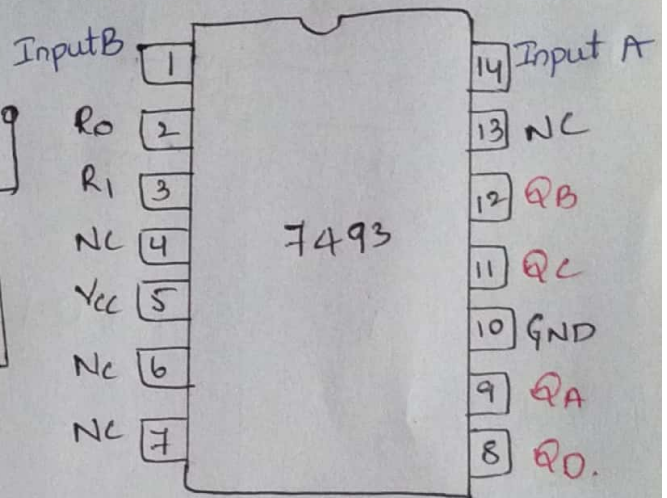 InputB 1
R0 2
R1 3
NC 4
Vcc 5
NC 6
NC 7
7493
14 Input A
13 NC
12 QB
11 QC
10 GND
9 QA
8 QD.